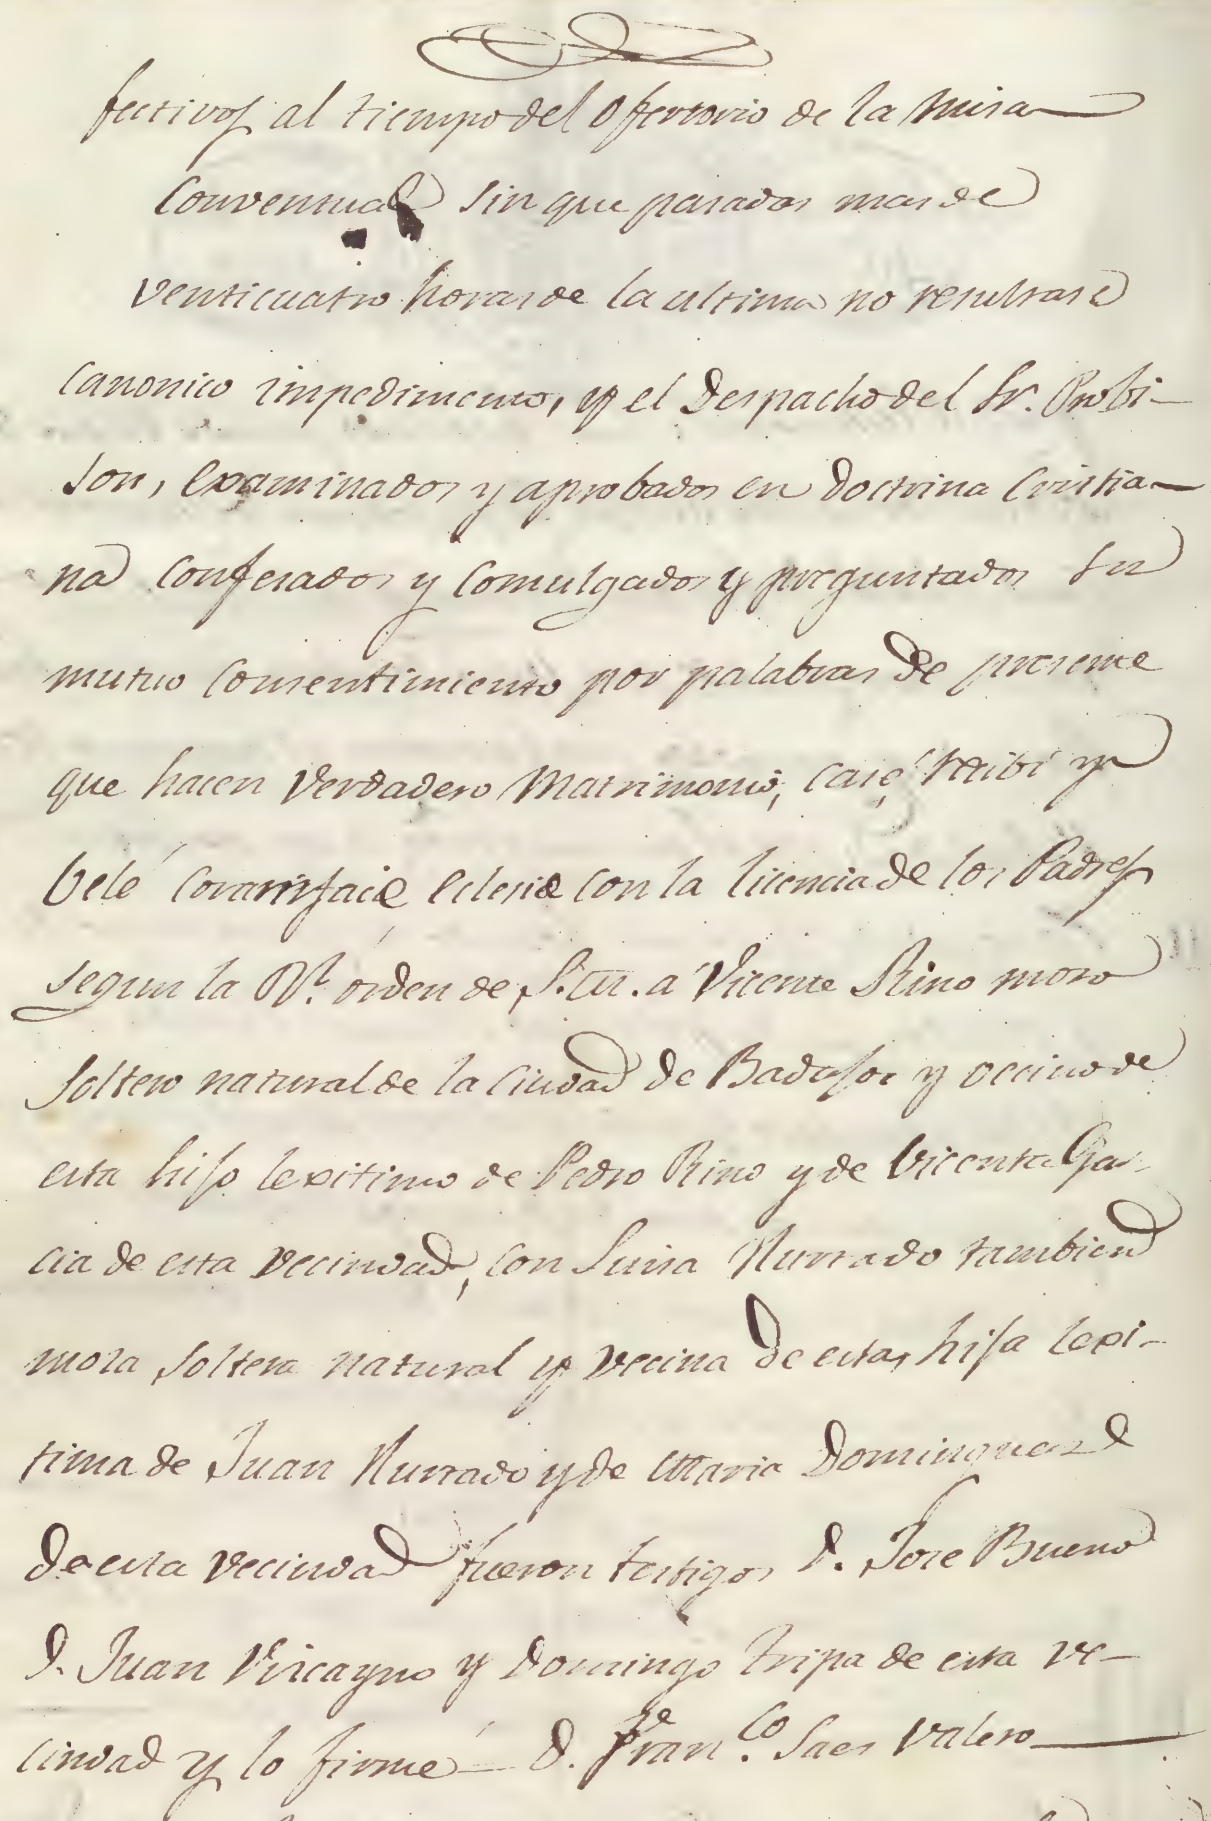 fectivos al tiempo del Ofertorio de la Misa
Conventual sin que pasadas mas de
venticuatro horas de la ultima no resultase
Canonico impedimento, y el Despacho del Sr. Probi-
sor, examinados y aprobados en Doctrina Cristia-
na Confesados y Comulgados y preguntados su
mutuo Consentimiento por palabras de presente
que hacen Verdadero Matrimonio, casé, recibí y
belé Coram facie Eclesie con la licencia de los Padres
segun la Rl. orden de S. M. a Vicente Rino moso
soltero natural de la Ciudad de Badajoz y vecino de
esta hijo lexitimo de Pedro Rino y de Vicenta Gar-
cia de esta vecindad, con Luisa Hurtado tambien
mosa soltera natural y vecina de esta, hija lexi-
tima de Juan Hurtado y de Maria Dominguez
de esta vecindad fueron testigos D. Jose Bueno
D. Juan Viscayno y Domingo Tripa de esta ve-
cindad y lo firmé D. Fran.co Saes Valero